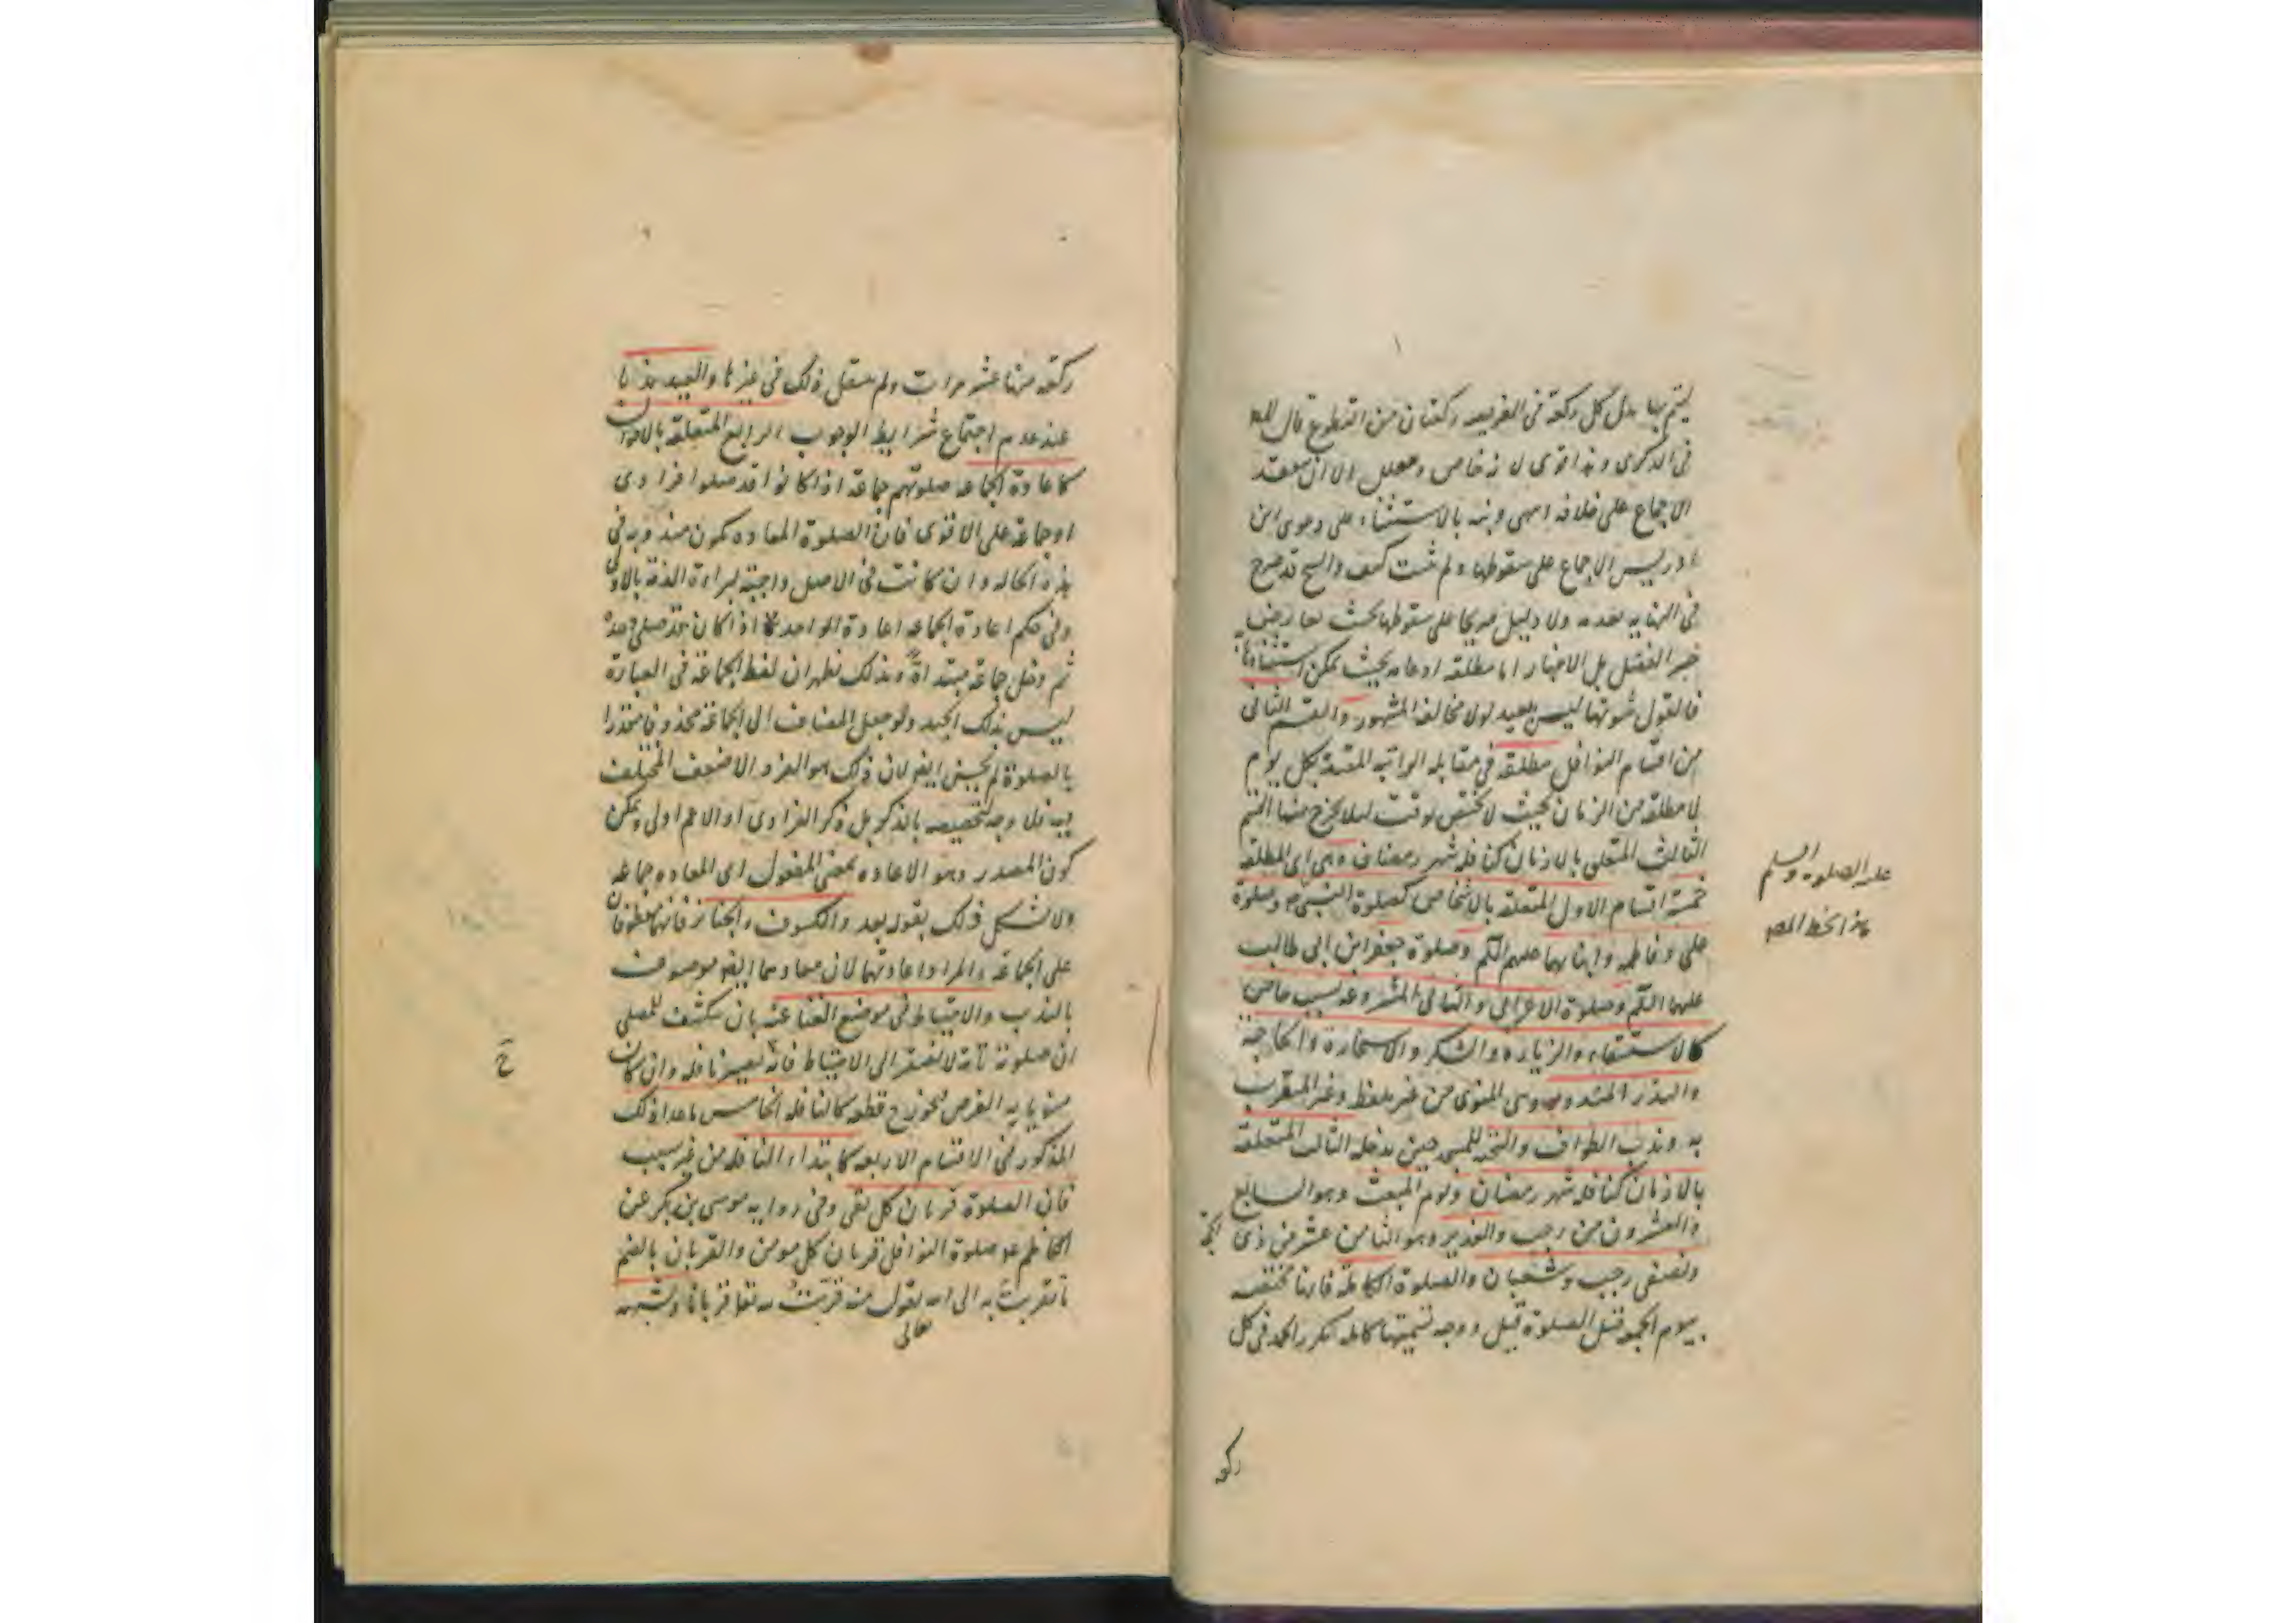 ليتم بها بدل كل ركعة من الفريضة ركعتان من التطوع قال المص
في الذكرى وهذا قوى لانه خاص ومعلل الا ان ينعقد
الاجماع على خلافه انتهى ونبه بالاستثناء على دعوى ابن
ادريس الاجماع على سقوطها ولم يثبت كيف والشيخ قد صرح
في النهاية بعدمه ولا دليل صريحا على سقوطها بحيث يعارض
خبر الفضل بل الاخبار اما مطلقه او عامه بحيث يمكن استثناؤها
فالقول بثبوتها ليس ببعيد لولا مخالفة المشهور والقسم الثاني
من اقسام النوافل مطلقه في مقابله الراتبه المقيدة بكل يوم
لا مطلقه من الزمان بحيث لا تختص بوقت لئلا يخرج منها القسم
الثالث المتعلق بالازمان كنافله شهر رمضان وهى اى المطلقه
خمسة اقسام الاول المتعلقه بالاشخاص كصلوة النبى ص وصلوة
على وفاطمه وابنائهما عليهم السلم وصلوة جعفر ابن ابى طالب
عليهما السلم وصلوة الاعرابى والثانى المشروعه بسبب خاص
كالاستسقاء والزياره والشكر والاستخارة والحاجة
والنذر المندوب وهى المنوى من غير تلفظ وغير المتقرب
به وندب الطواف والتحيه للمسجد حين يدخله الثالث المتعلقه
بالازمان كنافله شهر رمضان ويوم المبعث وهو السابع
والعشرون من رجب والغدير وهو الثامن عشر من ذى
الحجة
ونصفى رجب وشعبان والصلوة الكاملة فانها مختصه
بيوم الجمعه قبل الصلوة قيل ووجه تسميتها كامله تكرر الحمد في كل
ركعه
عليه الصلوة والسلم
هذا بخط المص
ركعه منها عشر مرات ولم ينقل ذلك في غيرها والعيد ندبا
عند عدم اجتماع شرايط الوجوب الرابع المتعلقه بالاحوال
كاعادة الجماعه صلوتهم جماعة اذا كانوا قد صلوا فرادى
او جماعة على الاقوى فان الصلوة المعاده تكون مندوبه في
هذه الحاله وان كانت في الاصل واجبة لبراءة الذمة بالاولى
وفى حكم اعادة الجماعه اعادة الواحد اذا كان قد صلى وحده
ثم دخل جماعة مبتداة وبذلك يظهر ان لفظ الجماعة في العبارة
ليس بذلك الجيد ولو جعل المضاف الى الجماعة محذوفا مقدرا
بالصلوة لم يحسن ايضا لان ذلك هو الفرد الاضعف المختلف
فيه فلا وجه لتخصيصه بالذكر بل ذكر الفرادى او الاعم اولى ويمكن
كون المصدر وهو الاعاده بمعنى المفعول اى المعاده جماعه
ولا يشكل ذلك بقوله بعد والكسوف والجنائز فانهما معطوفان
على الجماعة والمراد اعادتهما لان معادهما ايضا موصوف
بالندب والاحتياط فى موضع الغنا عنه بان ينكشف للمصلى
ان صلوته تامة لا تفتقر الى الاحتياط فانه يصير نافله وان كان
منويا به الفرض فيجوز ح قطعه كالنافله الخامس ما عدا ذلك
المذكور فى الاقسام الاربعه كابتداء النافله من غير سبب
فان الصلوة قربان كل تقى وفى روايه موسى بن بكر عن
الكاظم ع صلوة النوافل قربان كل مومن والقربان بالضم
ما تقربت به الى الله تعالى تقول منه قربت لله تعا قربانا ويشبه
خ